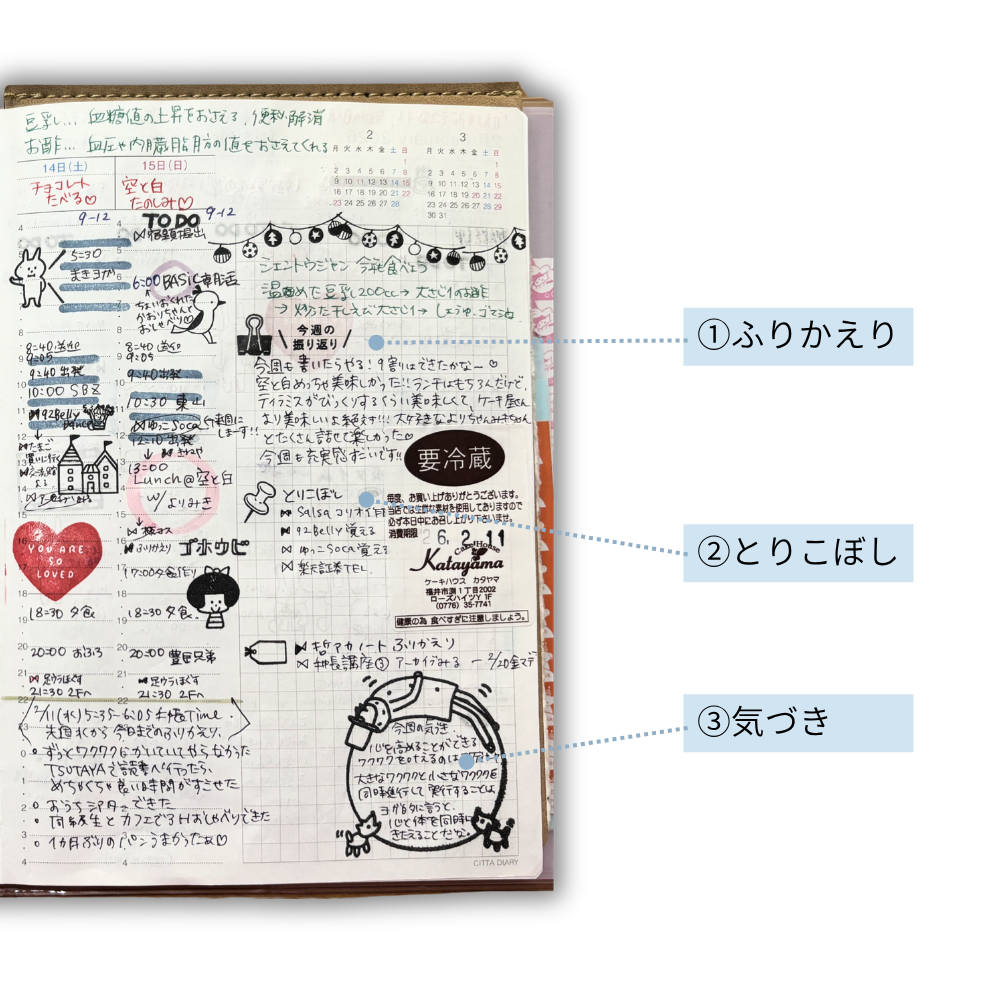 豆乳… 血糖値の上昇をおさえる、便秘解消
お酢… 血圧や内臓脂肪の値をおさえてくれる
14日(土)
チョコレート
たべる♡
9-12
15日(日)
空と白
たのしみ♡
9-12
2
月 火 水 木 金 土 日
1
2 3 4 5 6 7 8
9 10 11 12 13 14 15
16 17 18 19 20 21 22
23 24 25 26 27 28
3
月 火 水 木 金 土 日
1
2 3 4 5 6 7 8
9 10 11 12 13 14 15
16 17 18 19 20 21 22
23 24 25 26 27 28 29
30 31
5:30
まきヨガ
8:40 送迎
9:05
9:40 出発
10:00 SBZ
92Belly
たまご
買いに行く
YOU ARE
SO
LOVED
18:30 夕食
20:00 おふろ
足ウラほぐす
21:30 2Fへ
TO DO
宿題提出
6:00 BASIC
ちょいおくれた
かおりちゃんと
おしゃべり♡
8:40 送迎
9:05
9:40 出発
10:30
ゆっこSoca
来週に
します!!
12:10 出発
13:00
Lunch@空と白
w/ よりみき
ふりかえり
ゴホウビ
17:00 夕食作り
18:30 夕食
20:00 豊臣兄弟
足ウラほぐす
21:30 2Fへ
シェントウジャン 今年食べよう
温めた豆乳200cc→大さじ1のお酢
今週の
振り返り
今週も書いたらやる!9割はできたかな〜
空と白めっちゃ美味しかった!!ランチはもちろんだけど、
ティラミスがびっくりするくらい美味しくて、ケーキ屋さん
より美味しいよ絶対!!!大好きなよりちゃんみきちゃん
とたくさん話せて楽しかった♡
今週も充実感すごいです!!
とりこぼし
Salsa コリオ
92Belly 覚える
ゆっこSoca 覚える
TEL
要冷蔵
毎度、お買い上げありがとうございます。
当店では生の素材を使用しておりますので
必ず本日中にお召し上がり下さいませ。
消費期限
26. 2. 11
Cake House
Katayama
ケーキハウス カタヤマ
福井市渕1丁目2002
ローズハイツY 1F
(0776) 35-7741
健康の為 食べすぎに注意しましょう。
ノート ふりかえり
講座③ アーカイブみる 2/20金マデ
2/11(水)5:35-6:05 手帳Time.
先週水から今日までのふりかえり、
ずっとワクワク
TSUTAYAで読書へ行ったら、
めちゃくちゃ良い時間がすごせた
おうちシアターできた
同級生とカフェで3Hおしゃべりできた
1カ月ぶりのパンうまかったぁ♡
今週の気づき
心を高めることができる
ワクワクを叶えるのは
大きなワクワクと小さなワクワクを
同時進行して実行することは
ヨガ的に言うと、
心と体を同時に
きたえることだな。
CITTA DIARY
①ふりかえり
②とりこぼし
③気づき